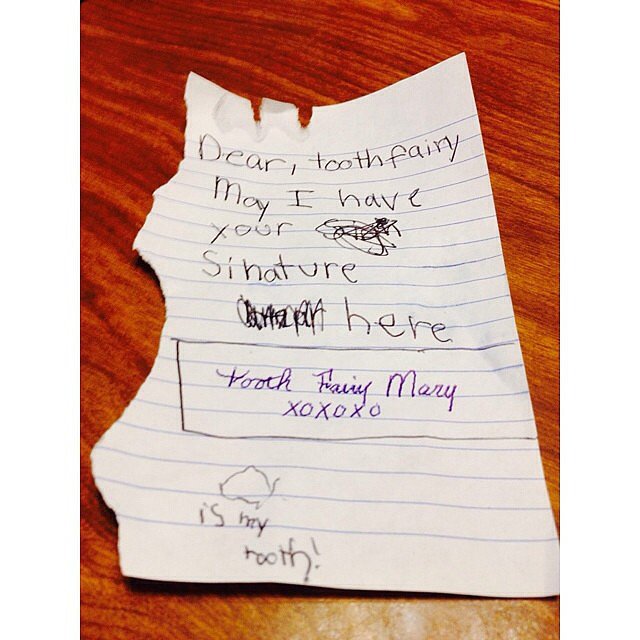 Dear, toothfairy
May I have
your
Sinature
here
Tooth Fairy Mary
XOXOXO
is my
tooth!